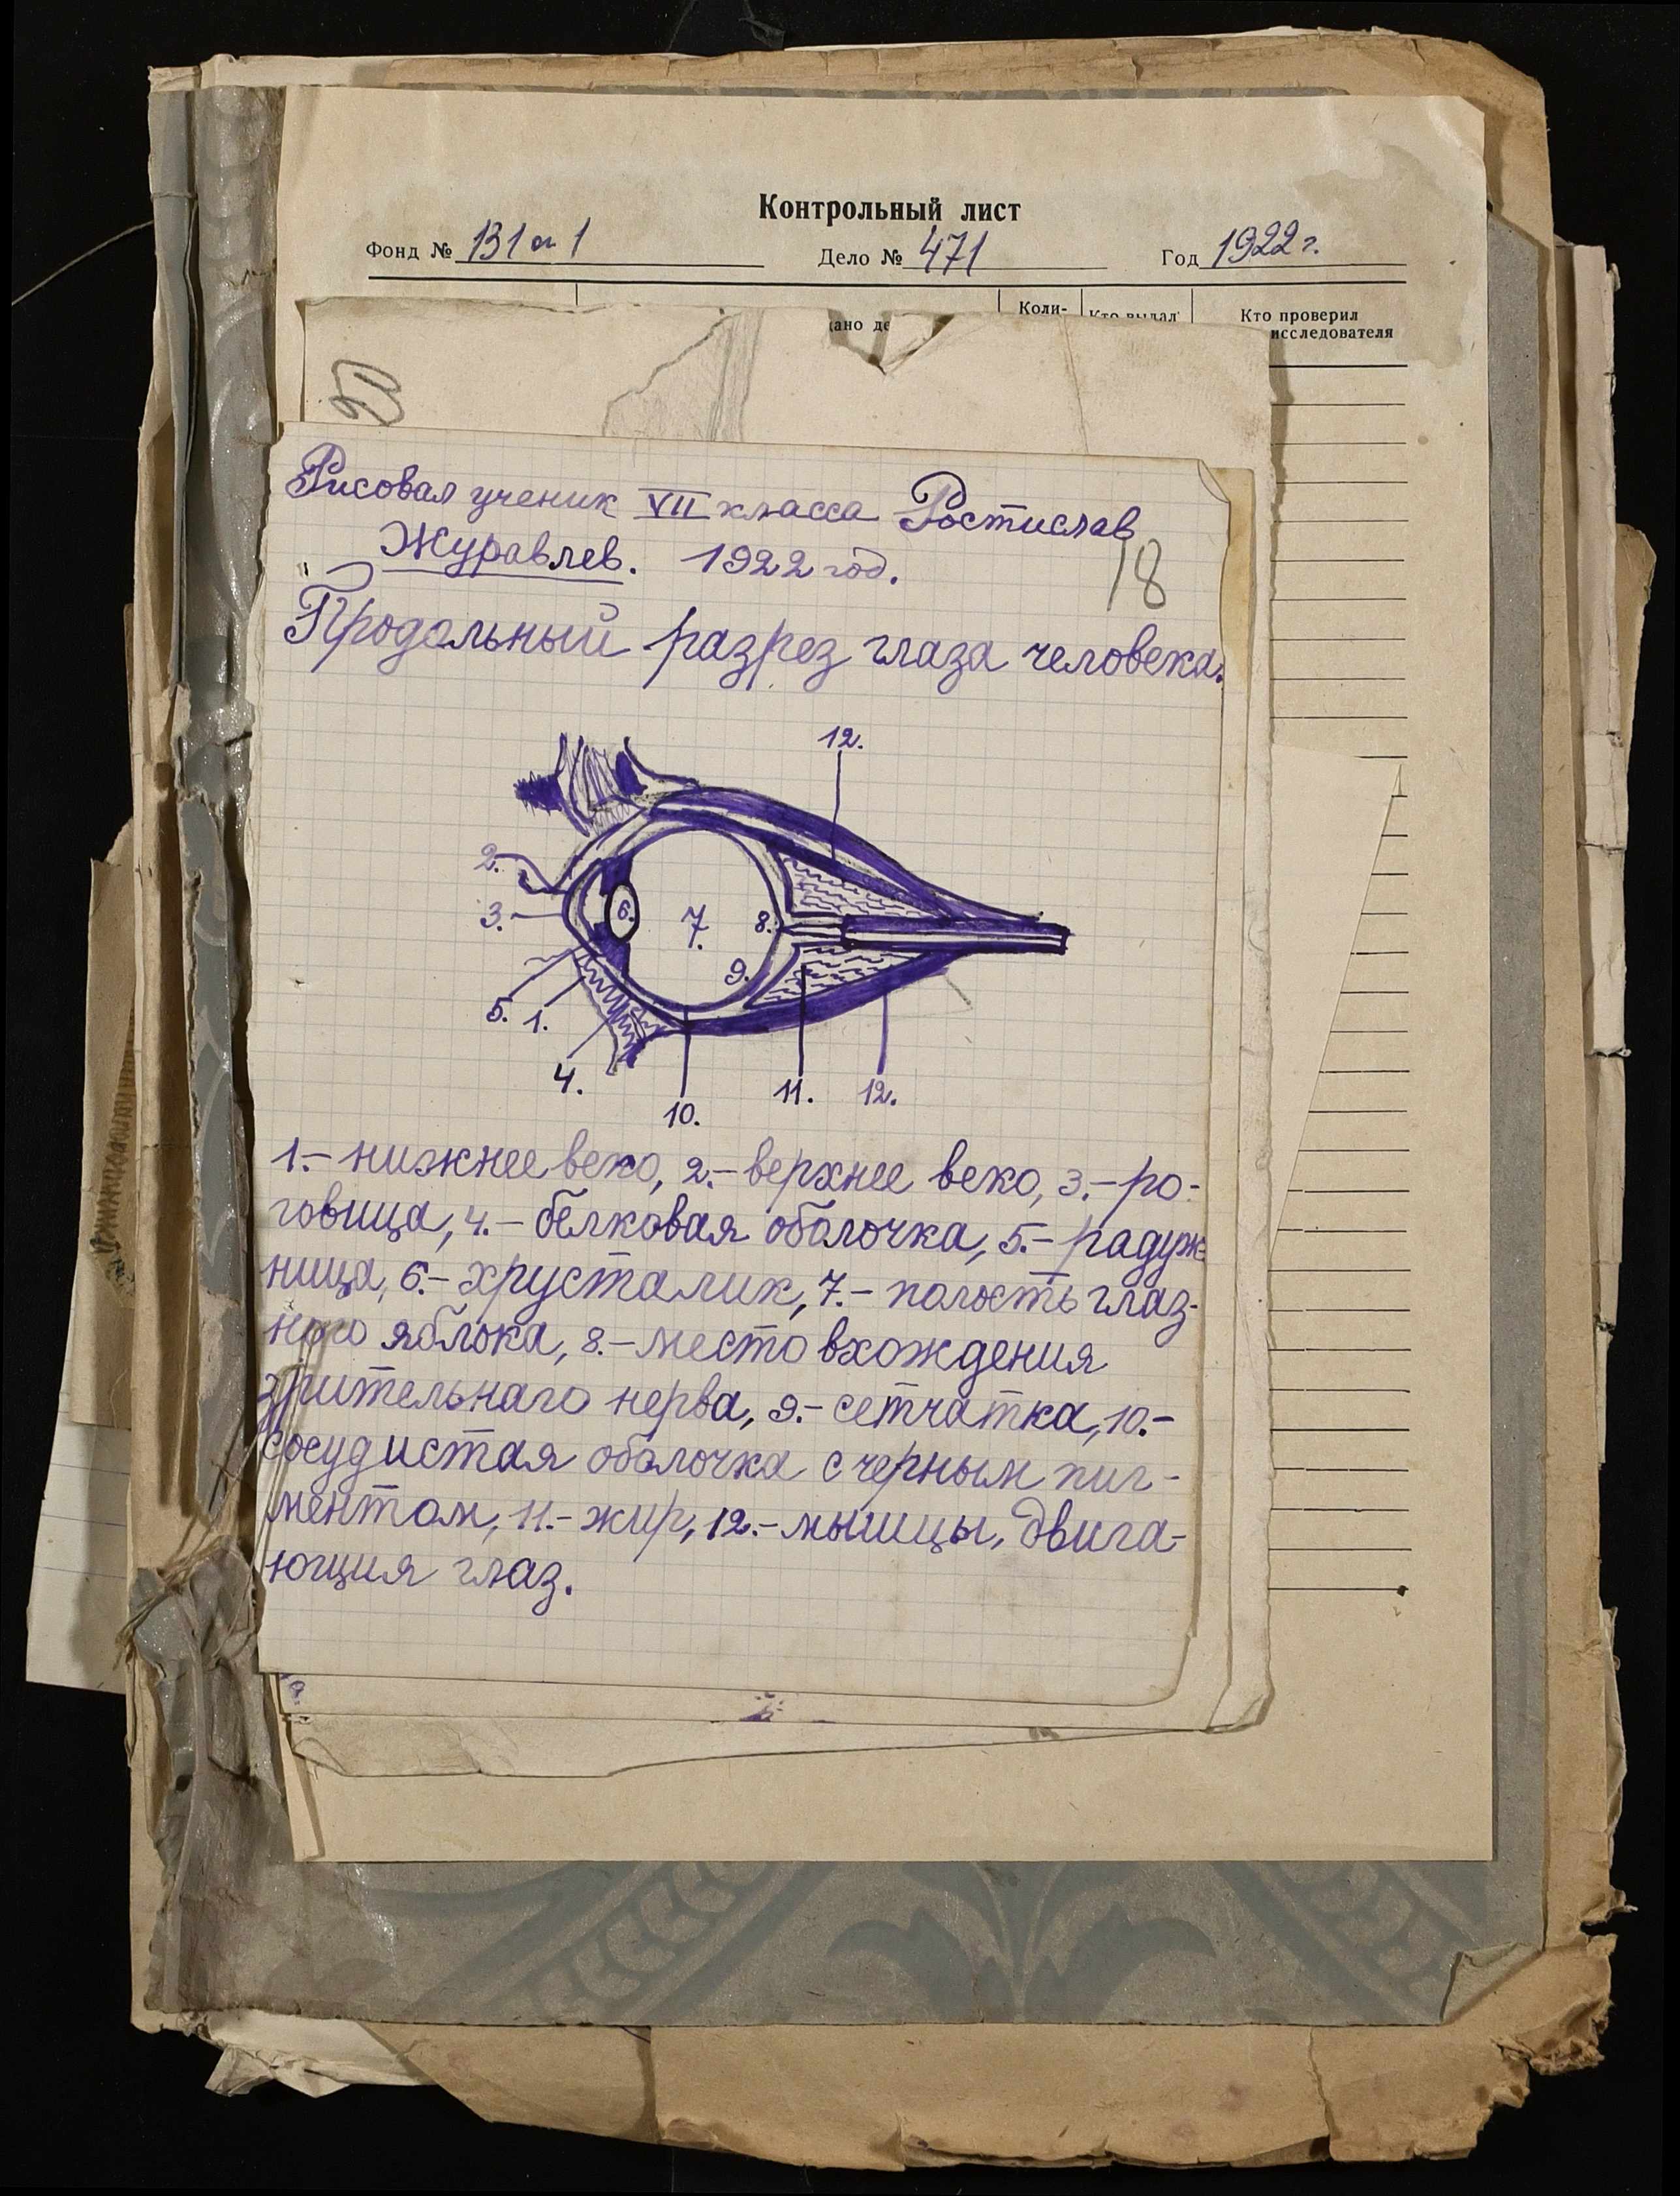 Контрольный лист
Фонд № 131 оп 1 Дело № 471 Год 1922 г.
Коли- Кто выдал Кто проверил
исследователя
Рисовал ученик VII класса Ростислав
Журавлев. 1922 год.
18
Продольный разрез глаза человека.
12.
2.
3.
6. 7. 8.
9.
5. 1.
4.
10. 11. 12.
1.– нижнее веко, 2.– верхнее веко, 3.– ро-
говица, 4.– белковая оболочка, 5.– радуж-
ница, 6.– хрусталик, 7.– полость глаз-
ного яблока, 8.– место вхождения
зрительнаго нерва, 9.– сетчатка, 10.–
сосудистая оболочка с черным пиг-
ментом, 11.– жир, 12.– мышцы, двига-
ющия глаз.